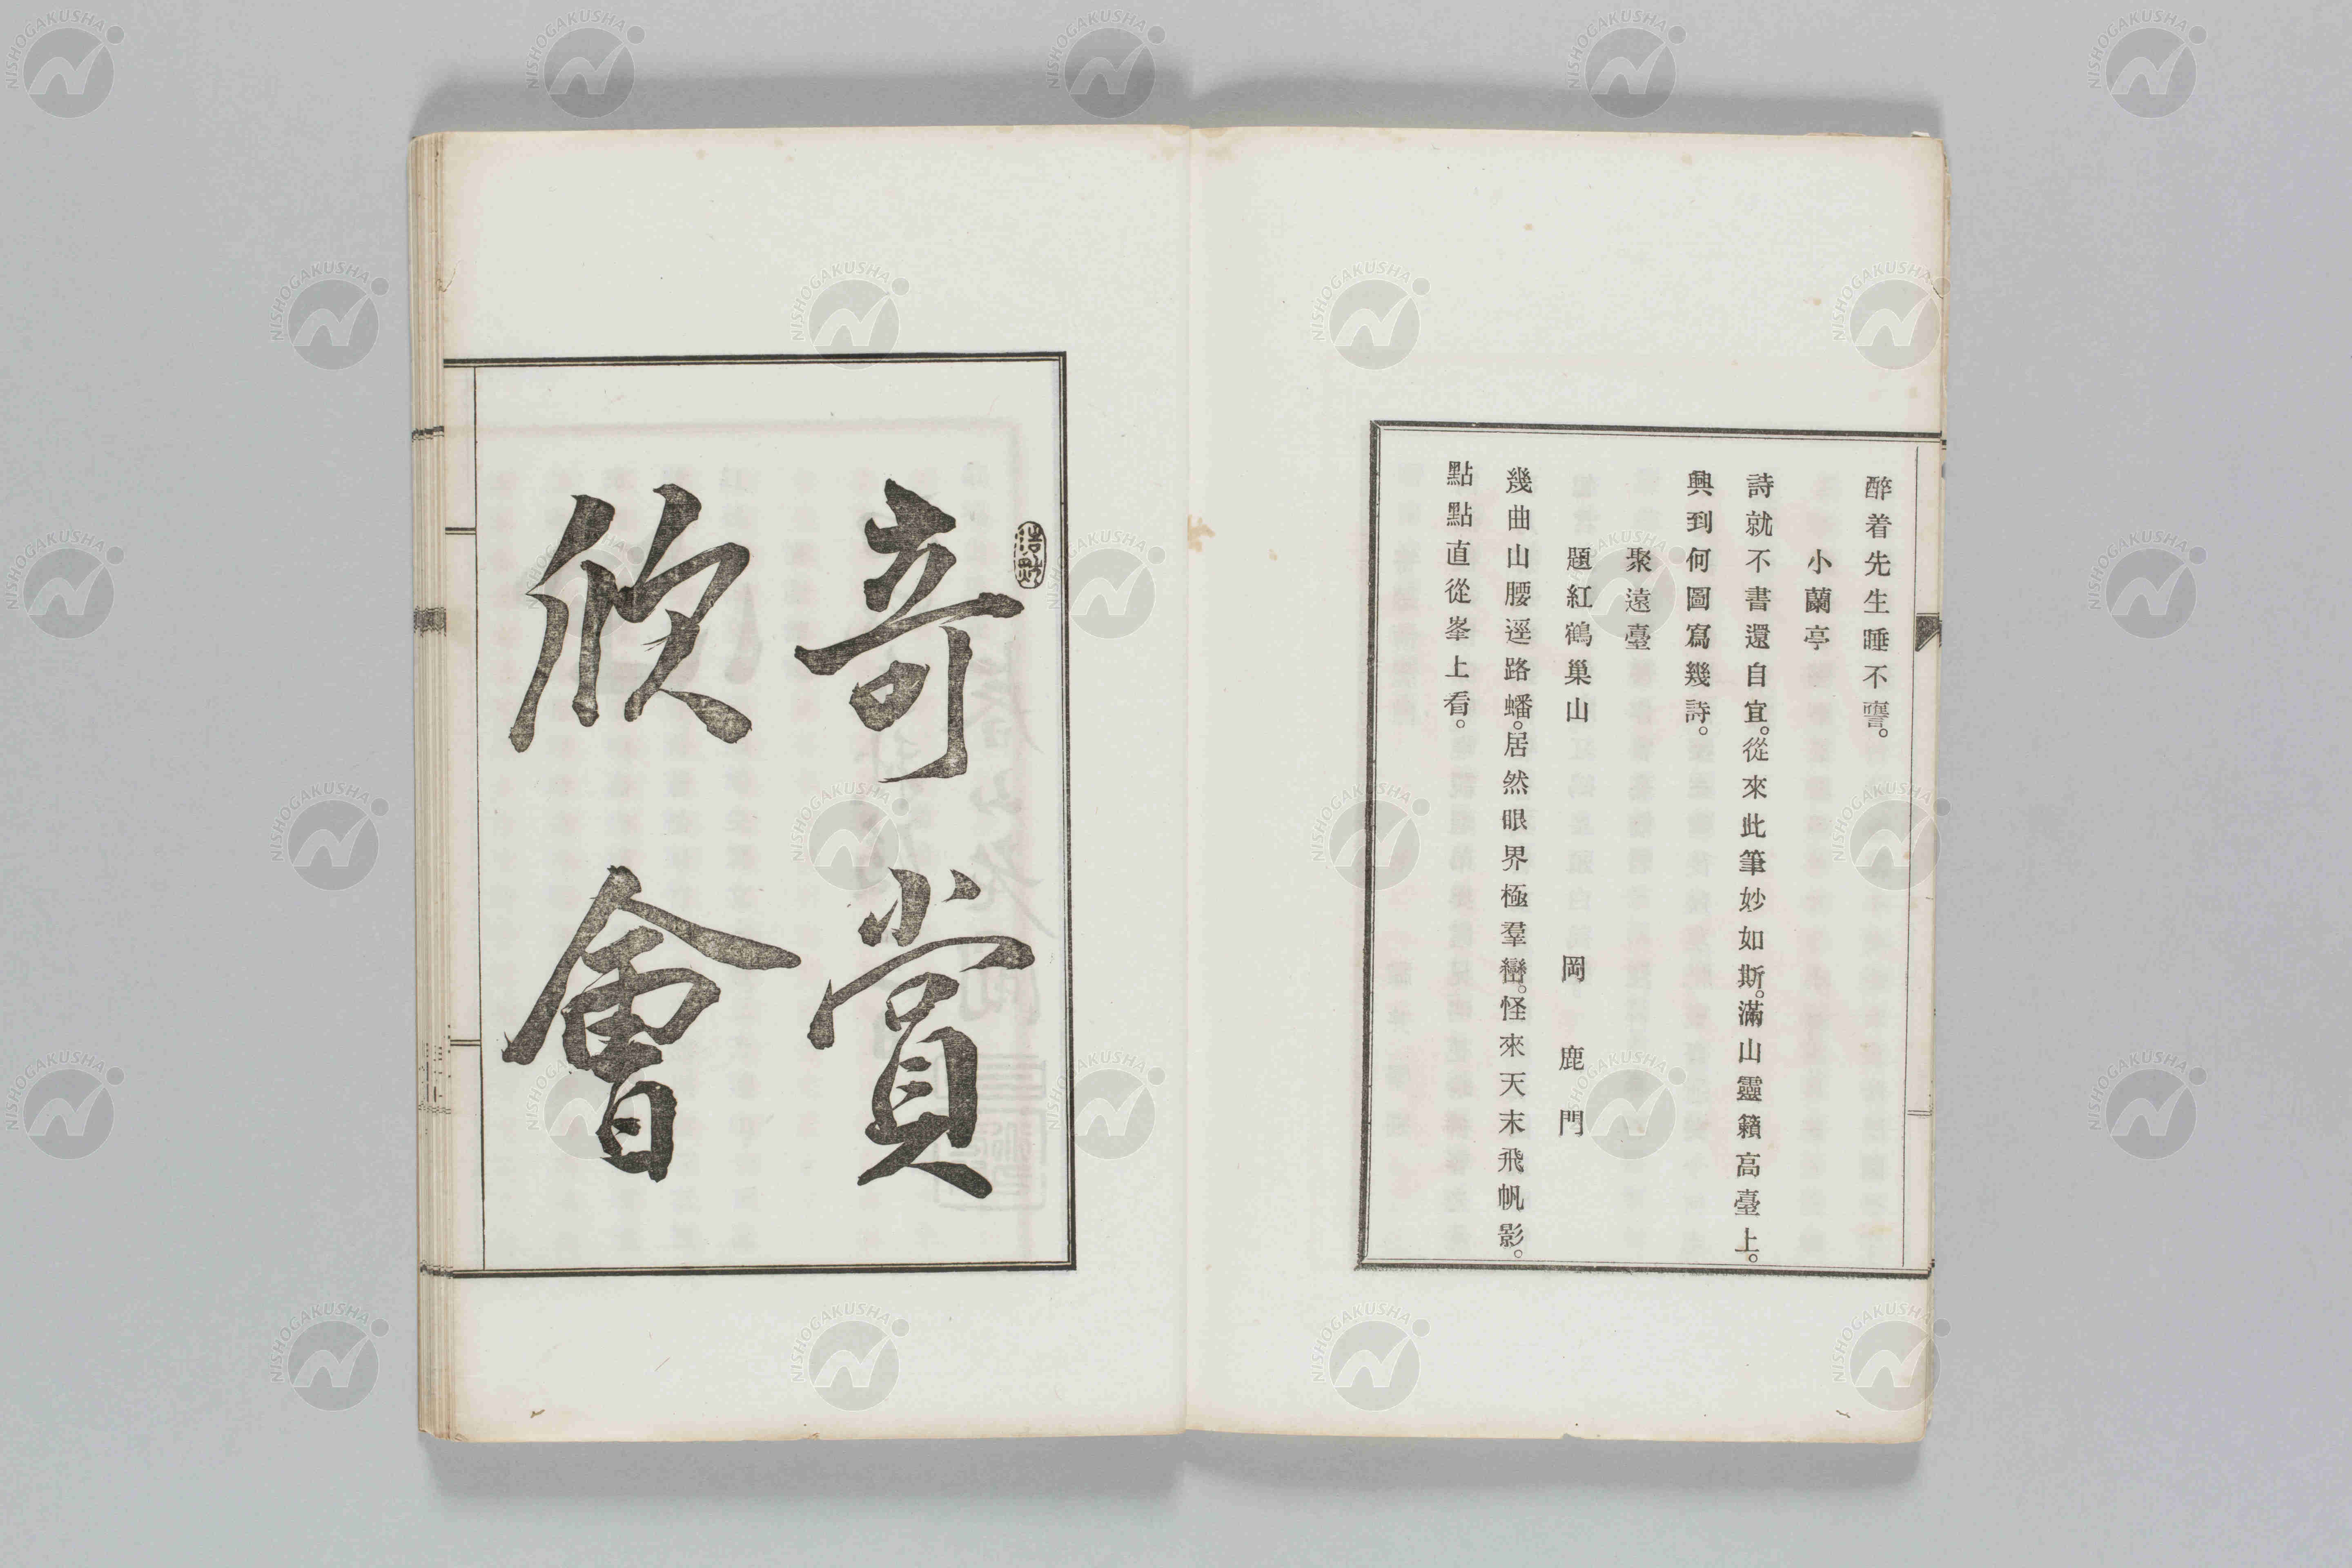 醉着先生睡不
小蘭亭
詩就不書還自宜。從來此筆妙如斯。滿山靈籟高臺上。
興到何圖寫幾詩。
聚遠臺
題紅鶴巢山 岡鹿門
幾曲山腰逕路蟠。居然眼界極羣巒。怪來天末飛帆影。
點點直從峯上看。
奇賞
欣會
NISHOGAKUSHA